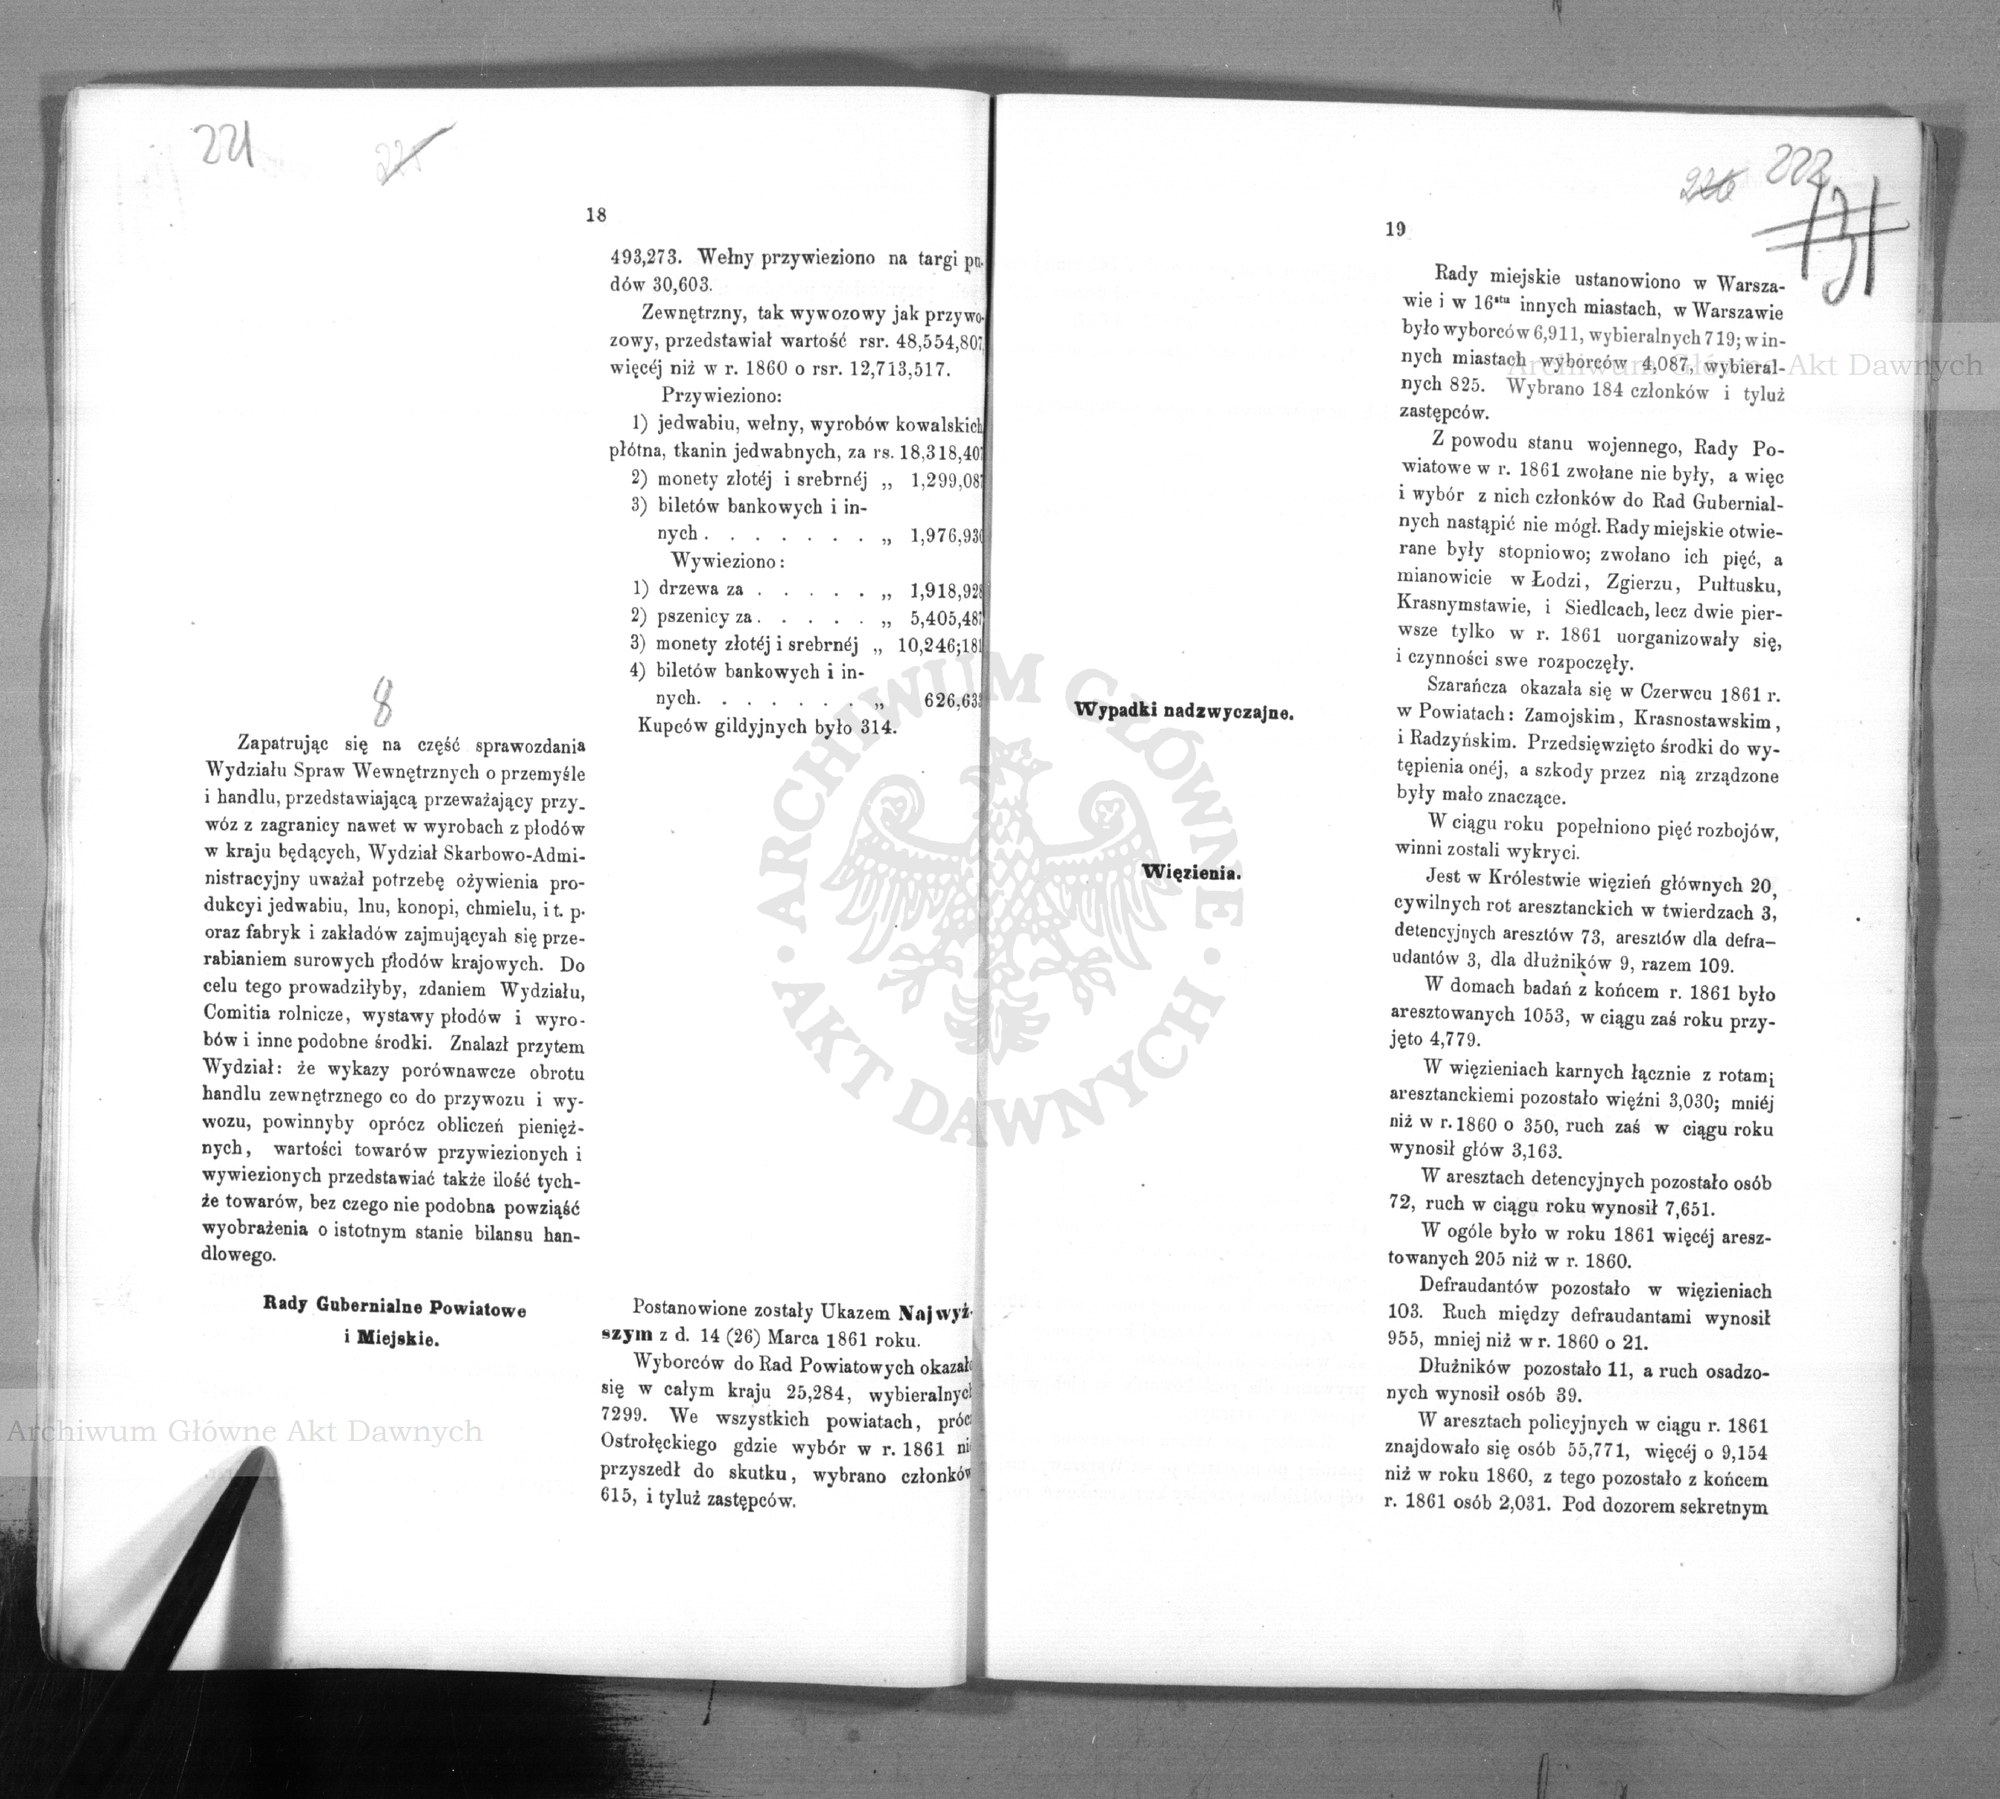 221
18
493,273. Wełny przywieziono na targi pu-
dów 30,603.
Zewnętrzny, tak wywozowy jak przywo-
zowy, przedstawiał wartość rsr. 48,554,807
więcéj niż w r. 1860 o rsr. 12,713,517.
Przywieziono:
1) jedwabiu, wełny, wyrobów kowalskich
płótna, tkanin jedwabnych, za rs. 18,318,407
2) monety złotéj i srebrnéj „ 1,299,087
3) biletów bankowych i in-
nych . . . . . . . „ 1,976,930
Wywieziono:
1) drzewa za . . . . . „ 1,918,928
2) pszenicy za . . . . . „ 5,405,487
3) monety złotéj i srebrnéj „ 10,246;181
4) biletów bankowych i in-
nych. . . . . . . „ 626,633
Kupców gildyjnych było 314.
8
Zapatrując się na część sprawozdania
Wydziału Spraw Wewnętrznych o przemyśle
i handlu, przedstawiającą przeważający przy-
wóz z zagranicy nawet w wyrobach z płodów
w kraju będących, Wydział Skarbowo-Admi-
nistracyjny uważał potrzebę ożywienia pro-
dukcyi jedwabiu, lnu, konopi, chmielu, i t. p.
oraz fabryk i zakładów zajmującyah się prze-
rabianiem surowych płodów krajowych. Do
celu tego prowadziłyby, zdaniem Wydziału,
Comitia rolnicze, wystawy płodów i wyro-
bów i inne podobne środki. Znalazł przytem
Wydział: że wykazy porównawcze obrotu
handlu zewnętrznego co do przywozu i wy-
wozu, powinnyby oprócz obliczeń pienięż-
nych, wartości towarów przywiezionych i
wywiezionych przedstawiać także ilość tych-
że towarów, bez czego nie podobna powziąść
wyobrażenia o istotnym stanie bilansu han-
dlowego.
Rady Gubernialne Powiatowe
i Miejskie.
Postanowione zostały Ukazem Najwyż-
szym z d. 14 (26) Marca 1861 roku.
Wyborców do Rad Powiatowych okazało
się w całym kraju 25,284, wybieralnych
7299. We wszystkich powiatach, prócz
Ostrołęckiego gdzie wybór w r. 1861 nie
przyszedł do skutku, wybrano członków
615, i tyluż zastępców.
226 222
131
19
Rady miejskie ustanowiono w Warsza-
wie i w 16stu innych miastach, w Warszawie
było wyborców 6,911, wybieralnych 719; w in-
nych miastach wyborców 4,087, wybieral-
nych 825. Wybrano 184 członków i tyluż
zastępców.
Z powodu stanu wojennego, Rady Po-
wiatowe w r. 1861 zwołane nie były, a więc
i wybór z nich członków do Rad Gubernial-
nych nastąpić nie mógł. Rady miejskie otwie-
rane były stopniowo; zwołano ich pięć, a
mianowicie w Łodzi, Zgierzu, Pułtusku,
Krasnymstawie, i Siedlcach, lecz dwie pier-
wsze tylko w r. 1861 uorganizowały się,
i czynności swe rozpoczęły.
Wypadki nadzwyczajne.
Szarańcza okazała się w Czerwcu 1861 r.
w Powiatach: Zamojskim, Krasnostawskim,
i Radzyńskim. Przedsięwzięto środki do wy-
tępienia onéj, a szkody przez nią zrządzone
były mało znaczące.
W ciągu roku popełniono pięć rozbojów,
winni zostali wykryci.
Więzienia.
Jest w Królestwie więzień głównych 20,
cywilnych rot aresztanckich w twierdzach 3,
detencyjnych aresztów 73, aresztów dla defra-
udantów 3, dla dłużników 9, razem 109.
W domach badań z końcem r. 1861 było
aresztowanych 1053, w ciągu zaś roku przy-
jęto 4,779.
W więzieniach karnych łącznie z rotami
aresztanckiemi pozostało więźni 3,030; mniéj
niż w r. 1860 o 350, ruch zaś w ciągu roku
wynosił głów 3,163.
W aresztach detencyjnych pozostało osób
72, ruch w ciągu roku wynosił 7,651.
W ogóle było w roku 1861 więcéj aresz-
towanych 205 niż w r. 1860.
Defraudantów pozostało w więzieniach
103. Ruch między defraudantami wynosił
955, mniej niż w r. 1860 o 21.
Dłużników pozostało 11, a ruch osadzo-
nych wynosił osób 39.
W aresztach policyjnych w ciągu r. 1861
znajdowało się osób 55,771, więcéj o 9,154
niż w roku 1860, z tego pozostało z końcem
r. 1861 osób 2,031. Pod dozorem sekretnym
Archiwum Główne Akt Dawnych
ARCHIWUM GŁÓWNE
AKT DAWNYCH
Archiwum Główne Akt Dawnych